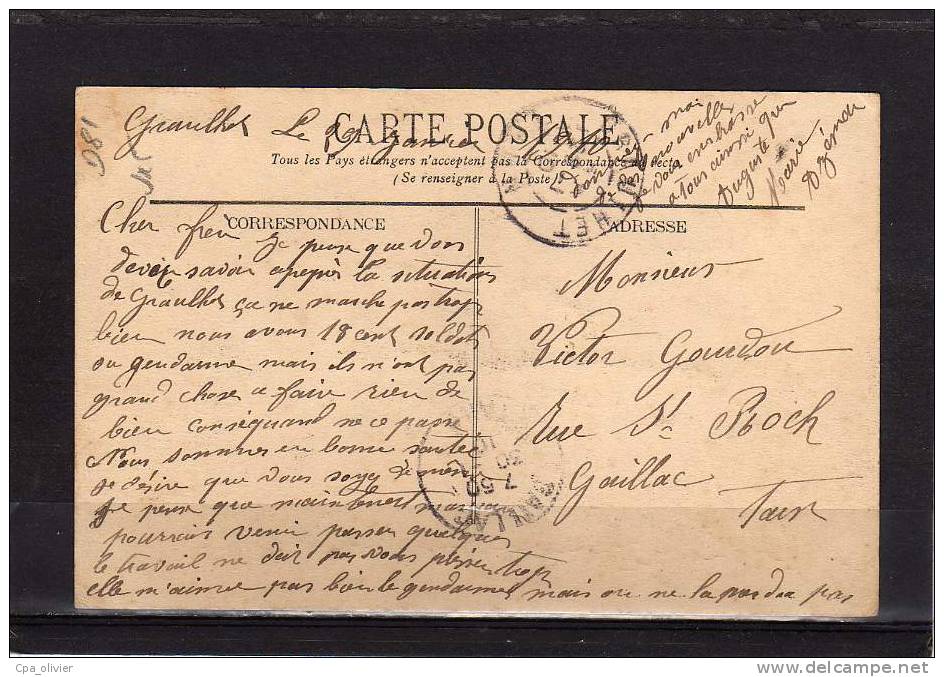 081
Graulhet Le 29 Janvier 1910
CARTE POSTALE
Tous les Pays étrangers n'acceptent pas la Correspondance au recto
(Se renseigner à la Poste)
Donnez moi
de vos nouvelles
je vous embrasse
a tous ainsi que
Auguste
Marie
CORRESPONDANCE
Cher frere Je pense que vous
devez savoir apeprès la situation
de Graulhet ça ne marche pas trop
bien nous avons 18 cent soldats
ou gendarme mais ils n'ont pas
grand chose a faire rien de
bien conséquant ne ce passe
Nous sommes en bonne santée
je désire que vous soyez de meme
Je pense que maintenant
pourrais venir passer quelques
le travail ne doit pas vous presser trop
elle m'aime pas bien le gendarmes mais on ne la pas
ADRESSE
Monsieur
Victor Gaudou
Rue St Roch
Gaillac
Tarn
GRAULHET
GAILLAC
7 50
30
10
Cpa_olivier
www.delcampe.net